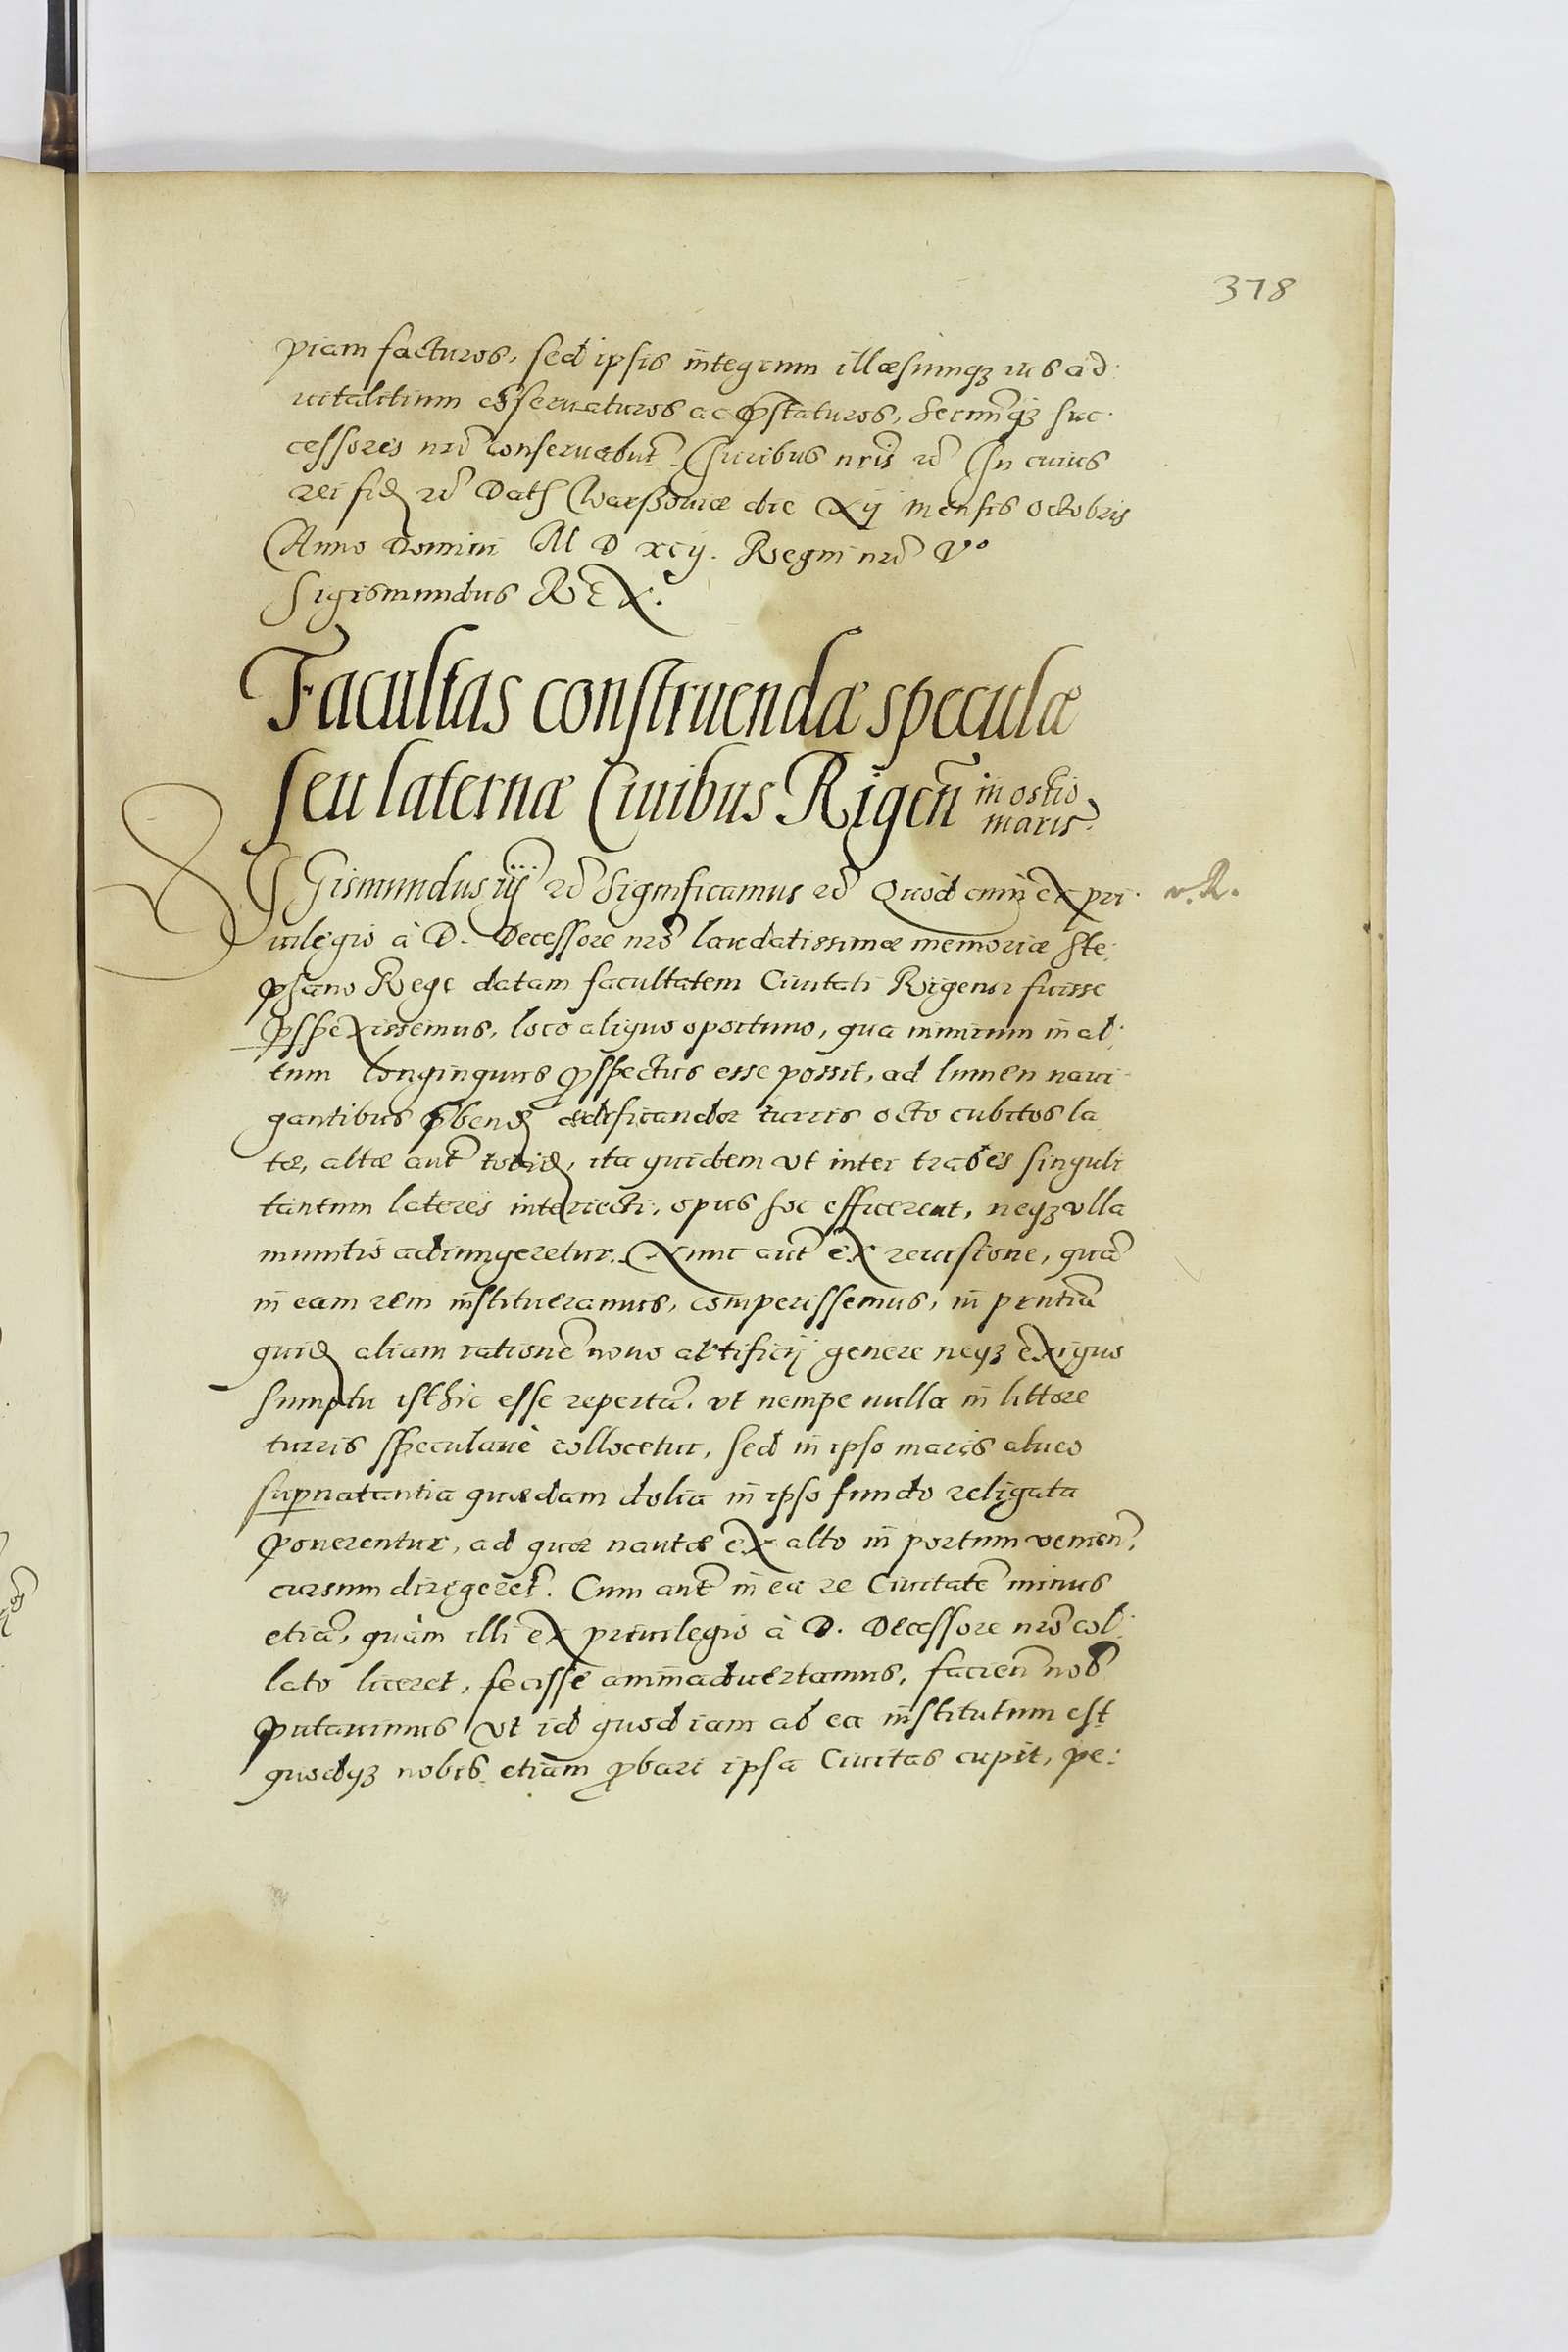 378
piam facturos, sed ipsis integrum illæsumqꝫ ius ad
vitalitium conseruaturos ac pręstaturos, Serenissqꝫ suc
cessores nri conseruabunt. Iuribus nris etc In cuius
rei fidem etc Dat Warssouiæ die xij mensis octobris
Anno Domini M D xcij. Regni nri Vº
Sigismundus REX.
Facultas construendæ speculæ
seu laternæ Ciuibus Rigen̄ in ostio
maris.
SIGismundus iij etc Significamus etc Quod cum ex pri
uilegio à D. Decessore nrō laudatissimæ memoriæ Ste
phano Rege datam facultatem Ciuitati Rigensi fuisse
perspexissemus, loco aliquo oportuno, qua nimirum in al
tum longinquus prospectus esse possit, ad lumen naui
gantibus prębend ædificandæ turris octo cubitos la
tæ, altæ aut totid, ita quidem vt inter trabes singuli
tantum lateres interiecti, opus hoc efficerent, neqꝫ vlla
munitio adiungeretur. Nunc aut ex reuisione, quā
in eam rem institueramus, comperissemus, in prntiā
quid aliam rationē nouo artificij genere neqꝫ exiguo
sumptu isthic esse repertā, vt nempe nulla in littore
turris speculaue collocetur, sed in ipso maris alueo
supnatantia quædam dolia in ipso fundo religata
ponerentur, ad quæ nautæ ex alto in portum venien.
cursum dirigeret. Cum aut in ea re Ciuitatē minus
etiā, quàm illi ex priuilegio à D. Decessore nrō col
lato liceret, fecisse animaduertamus, facien nob
putauimus vt id quod iam ab ea institutum est
quodqꝫ nobis etiam probari ipsa Ciuitas cupit, pe: